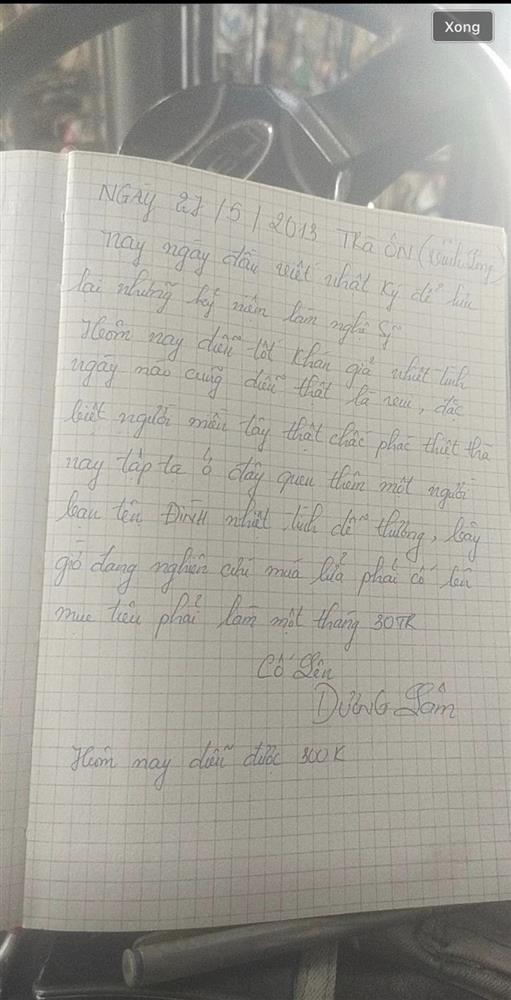 Xong
NGÀY 27/5/2013 TRÀ ÔN (Vĩnh Long)
Nay ngày đầu viết nhật ký để lưu
lại những kỷ niệm làm nghệ sỹ
Hôm nay diễn tốt khán giả nhiệt tình
ngày nào cũng diễn thật là vui, đặc
biệt người miền tây thật chấc phac thiệt thà
nay tấp ta ở đây quen thêm một người
bạn tên ĐÌNH nhiệt tình dễ thương, bây
giờ đang nghiên cứu múa lửa phải cố lên
mục tiêu phải làm một tháng 30TR
Cố Lên
DƯƠNG Lâm
Hôm nay diễn được 300K